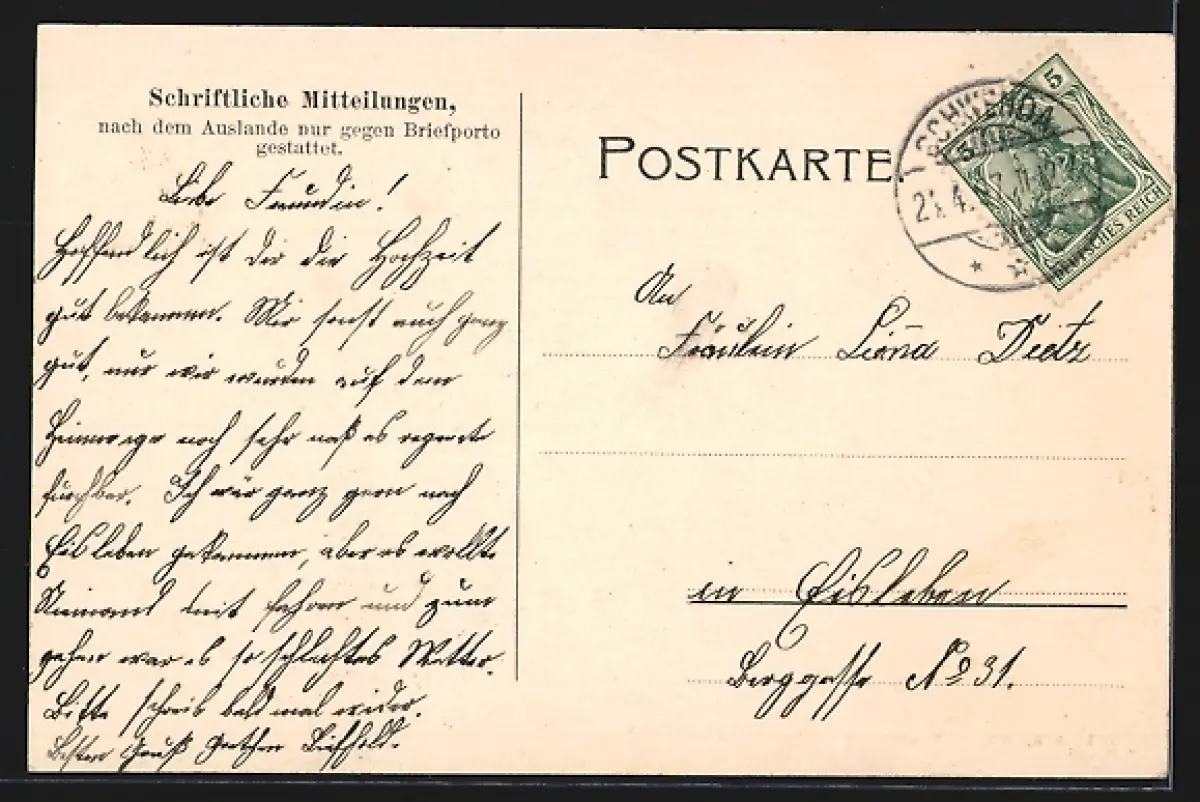 Schriftliche Mitteilungen,
nach dem Auslande nur gegen Briefporto
gestattet.
Liebe Freundin!
Hoffendlich ist dir die Hochzeit
gut bekommen. Mir sonst auch ganz
gut, nur wir wurden auf dem
Heimwege noch sehr naß es regnete
furchbar. Ich wär ganz gern nach
Eisleben gekommen, aber es wollte
Niemand mit fahren und zum
gehen war es so schlechtes Wetter.
Bitte schreib bald mal wider.
Besten Gruß
POSTKARTE
SCHWENDA
21.4.
5
DEUTSCHES REICH
An
Fräulein Dietz
in Eisleben
Berggasse No 31.